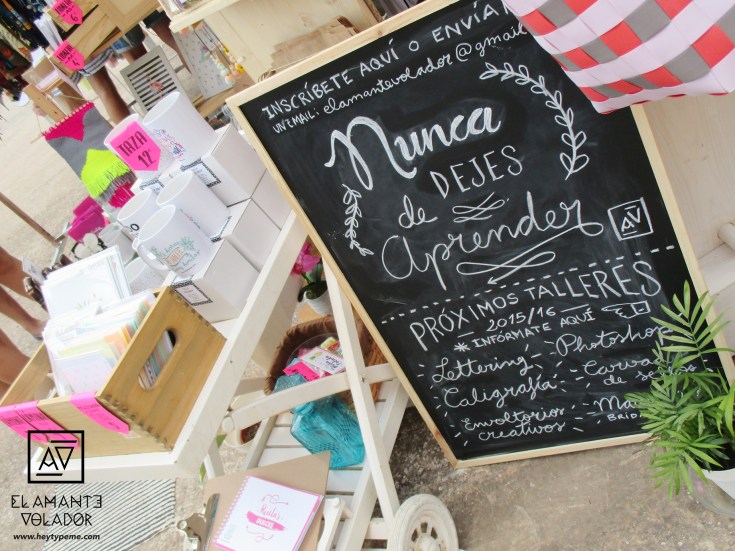 INSCRÍBETE AQUÍ O ENVÍA
UN EMAIL: elamantevolador@gmail
Nunca
DEJES
de
Aprender
AV
PRÓXIMOS TALLERES
2015/16
* INFÓRMATE AQUÍ
Lettering
Photoshop
Caligrafía
Carvado
de sellos
Envoltorios
creativos
TAZA
12
6
AV
EL AMANTE
VOLADOR
www.heytypeme.com